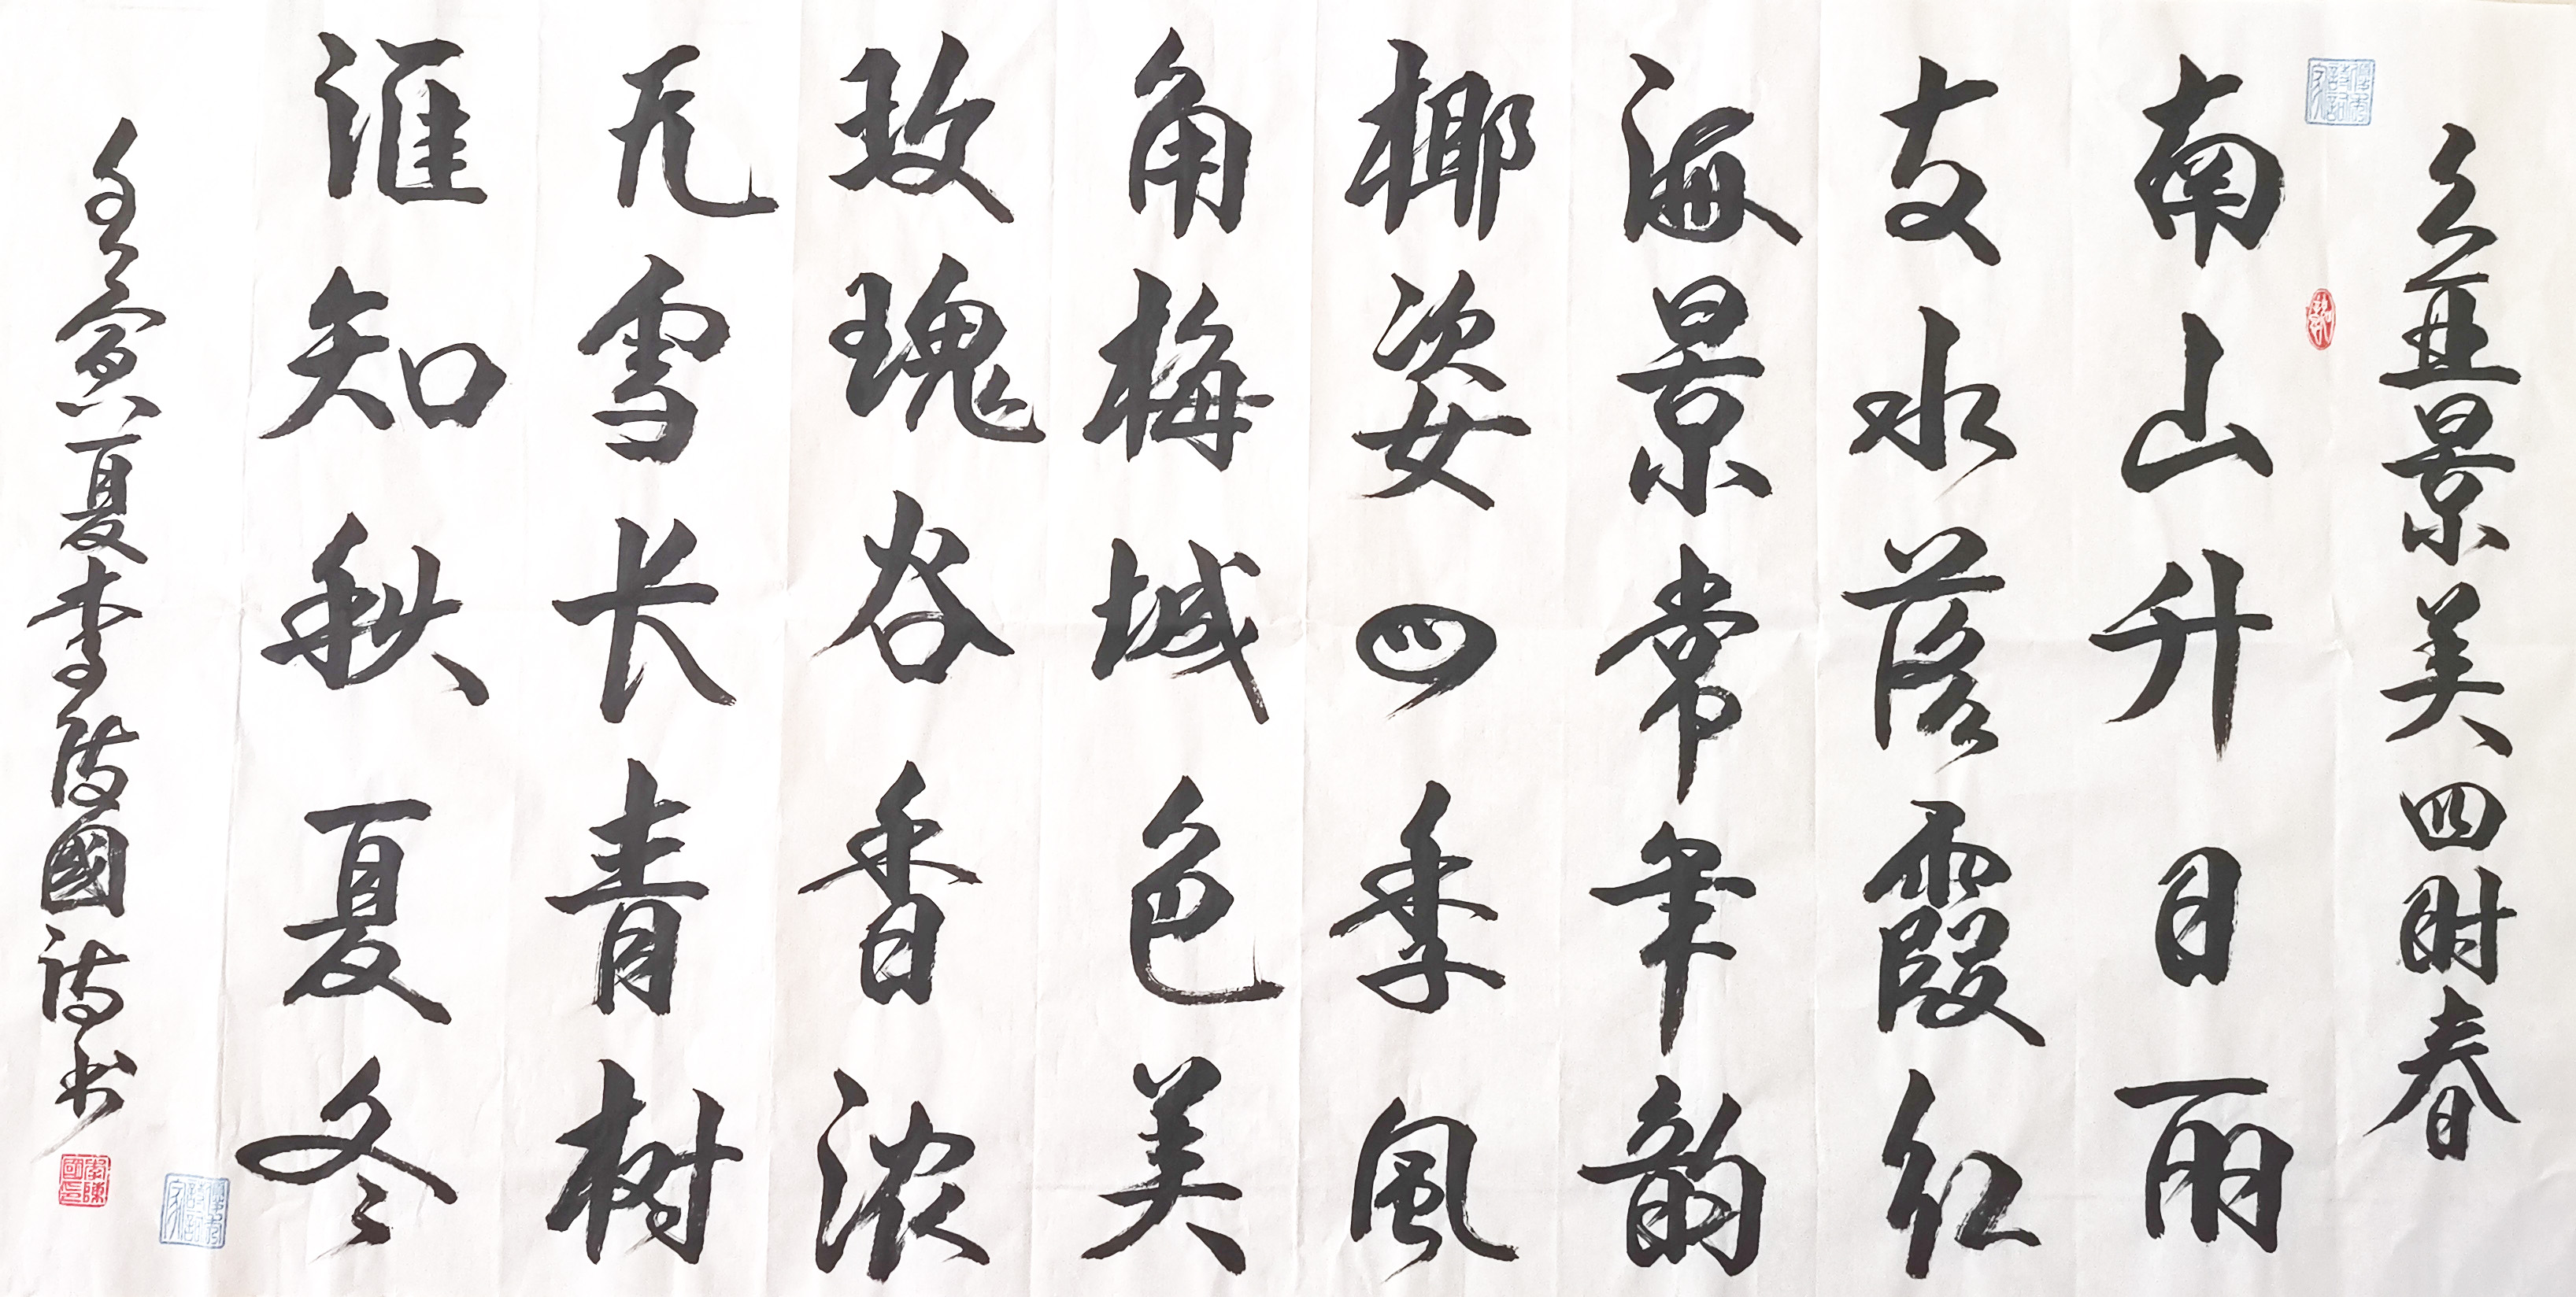 三亚景美四时春
南山升日丽
支水落霞红
海景常年韵
椰姿四季风
角梅城色美
玫瑰谷香浓
无雪长青树
谁知秋夏冬
壬寅夏李陈國诗书